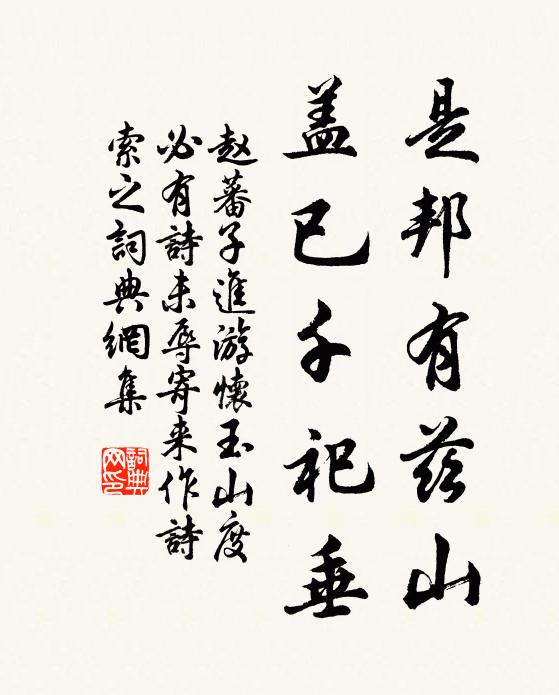 是邦有茲山
盖已千祀垂
赵蕃子進游懷玉山度
必有詩未辱寄来作詩
索之詞典網集
詞典网印